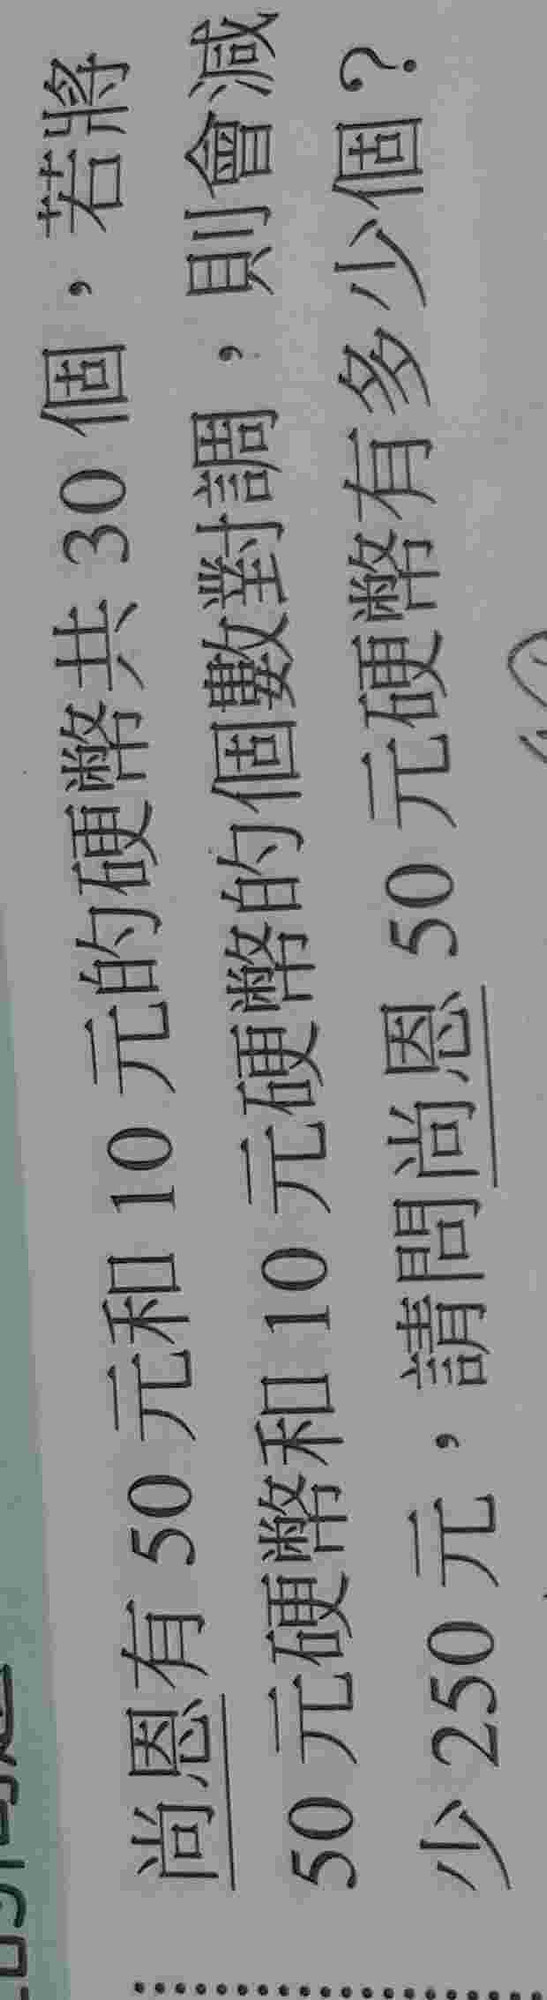 尚恩有 50 元和 10 元的硬幣共 30 個，若將
50 元硬幣和 10 元硬幣的個數對調，則會減
少 250 元，請問尚恩 50 元硬幣有多少個？